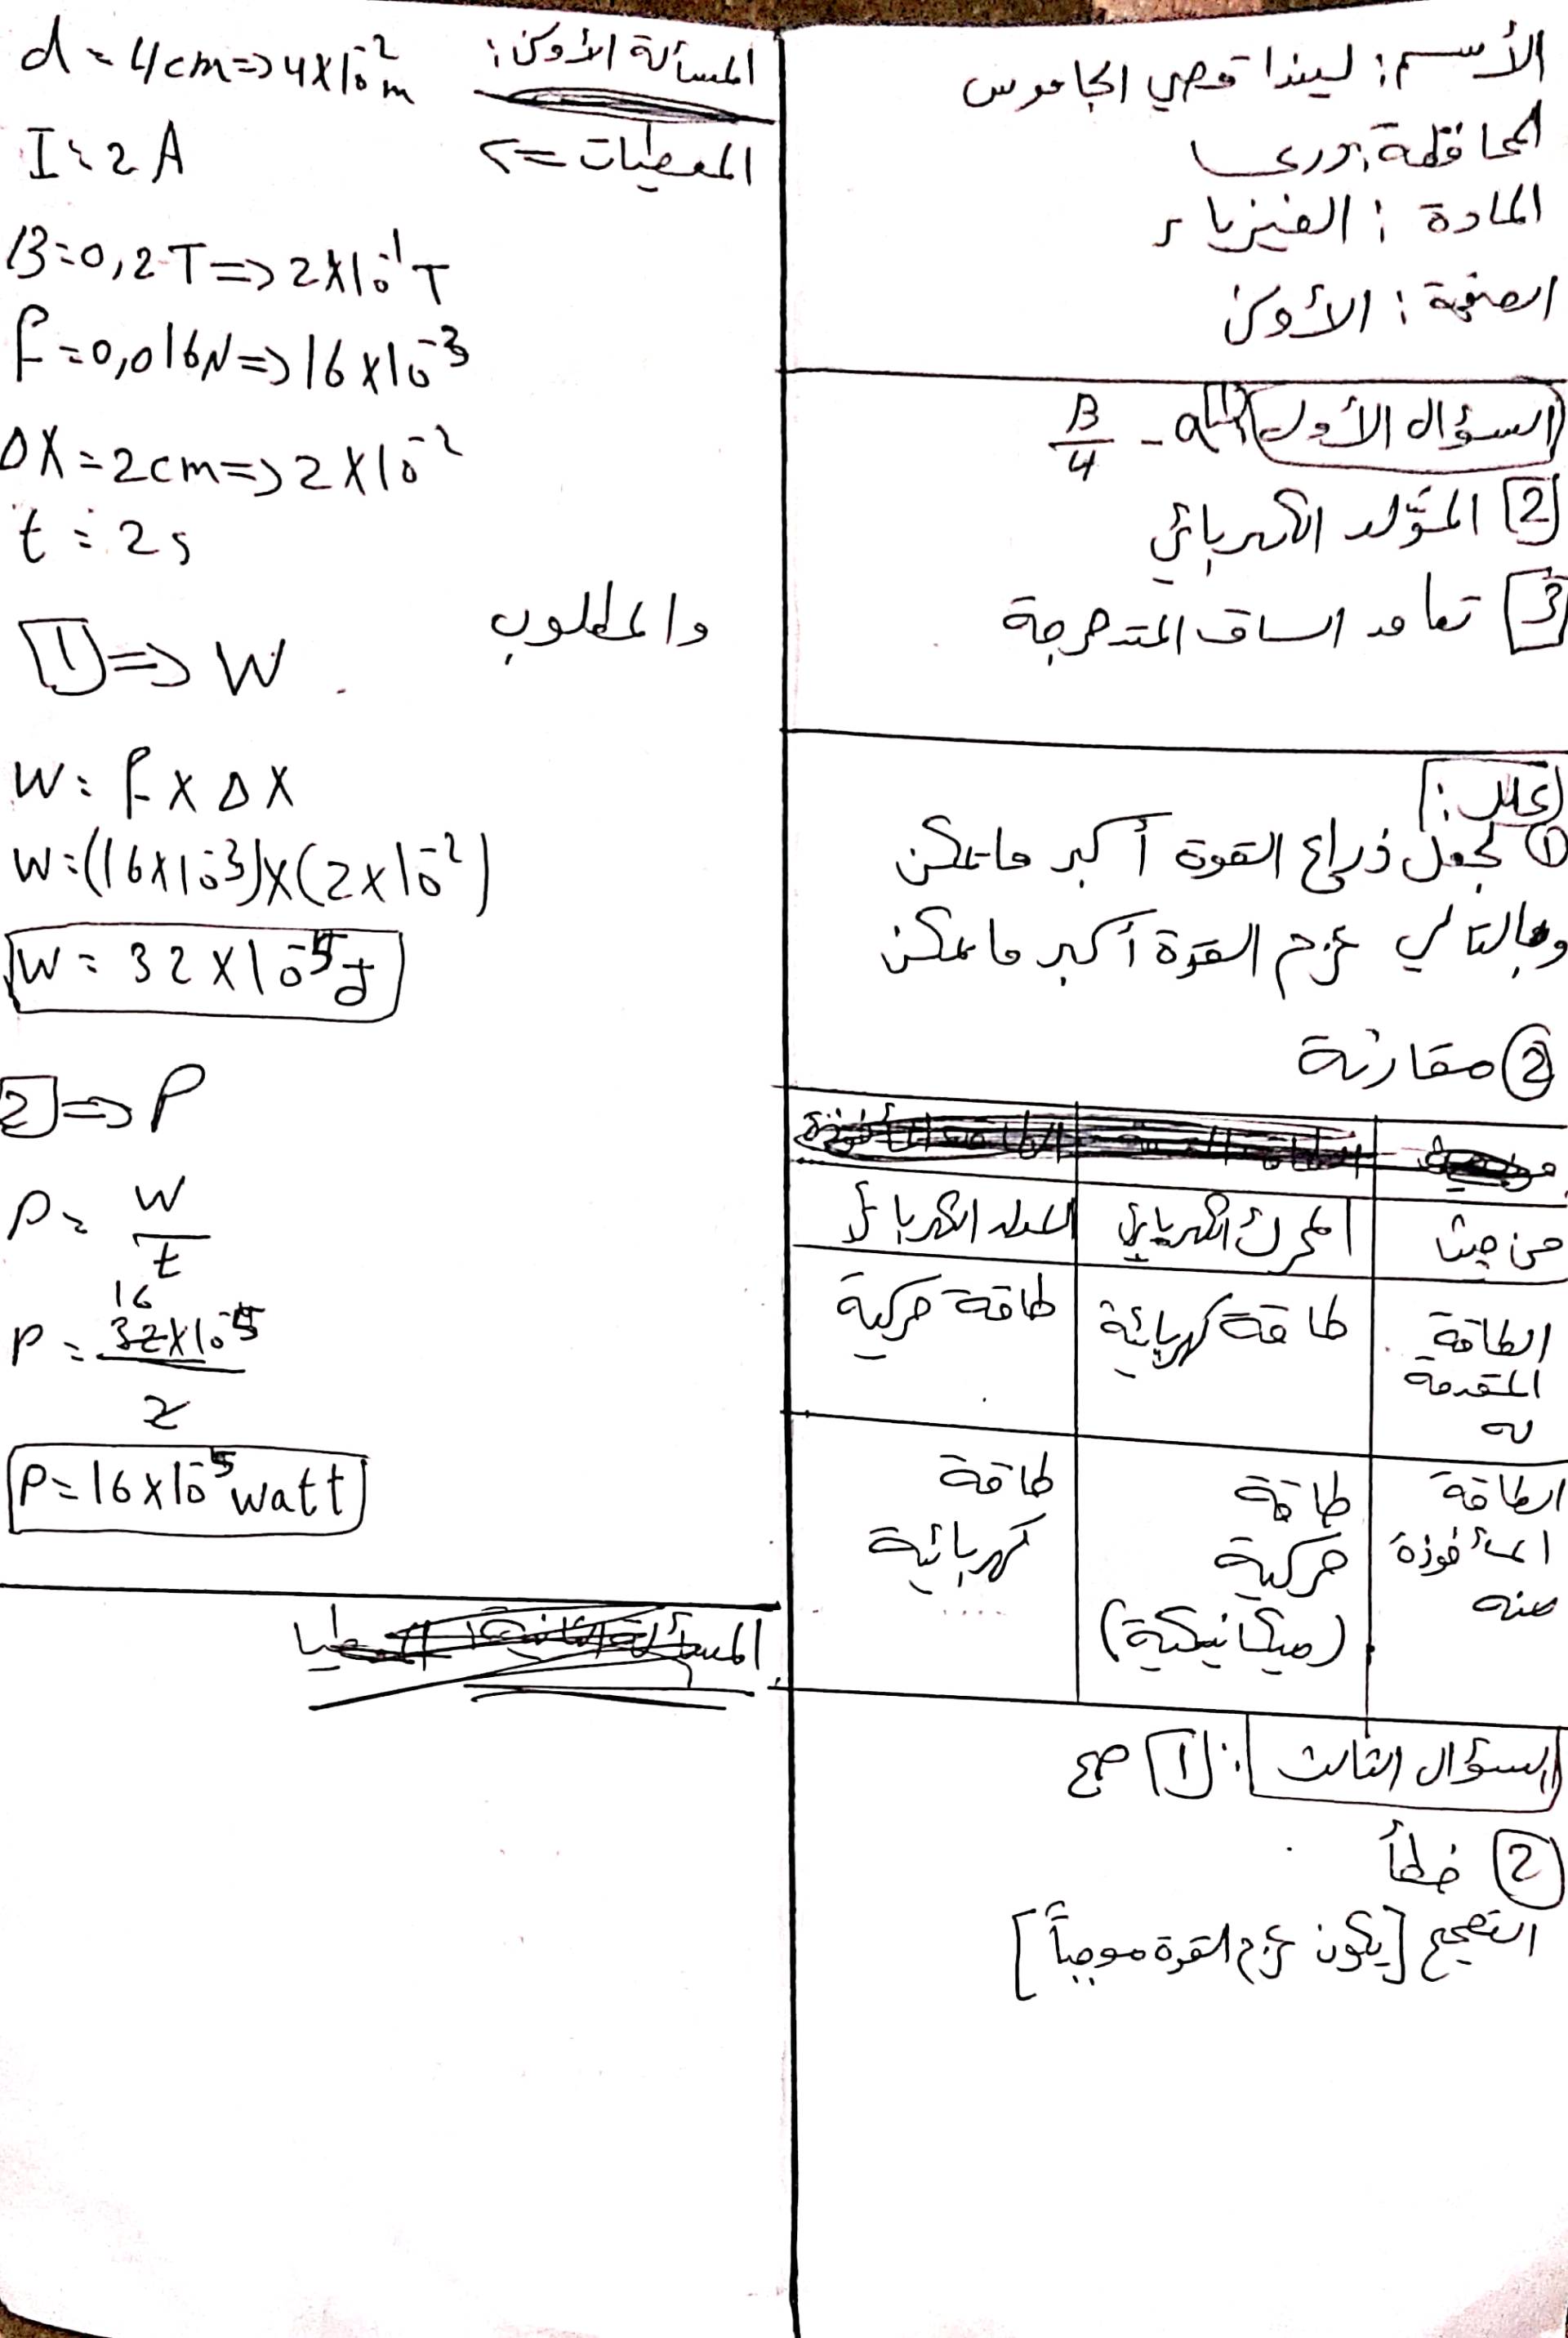 الأسم: ليندا قصي الجاموس
المحافظة: درعا
المادة: الفيزياء
الصفحة: الأولى
السؤال الأول 1 a - B/4
2 المولد الكهربائي
3 تعامد الساق المتدحرجة
علل:
① لجعل ذراع القوة أكبر ما يمكن
وبالتالي عزم القوة أكبر ما يمكن
② مقارنة
من حيث | المحرك الكهربائي | المولد الكهربائي
الطاقة المقدمة له | طاقة كهربائية | طاقة حركية
الطاقة المأخوذة منه | طاقة حركية (ميكانيكية) | طاقة كهربائية
السؤال الثالث: 1 صح
② خطأ
التصحيح [يكون عزم القوة موجباً]
المسألة الأولى:
المعطيات =>
d = 4cm => 4×10⁻²m
I = 2 A
B = 0,2 T => 2×10⁻¹ T
F = 0,016N => 16×10⁻³
ΔX = 2cm => 2×10⁻²
t = 2s
والمطلوب
1 => W
W = F × ΔX
W = (16×10⁻³)×(2×10⁻²)
W = 32×10⁻⁵ J
2 => P
P = W/t
16
P = 32×10⁻⁵/2
P = 16×10⁻⁵ watt